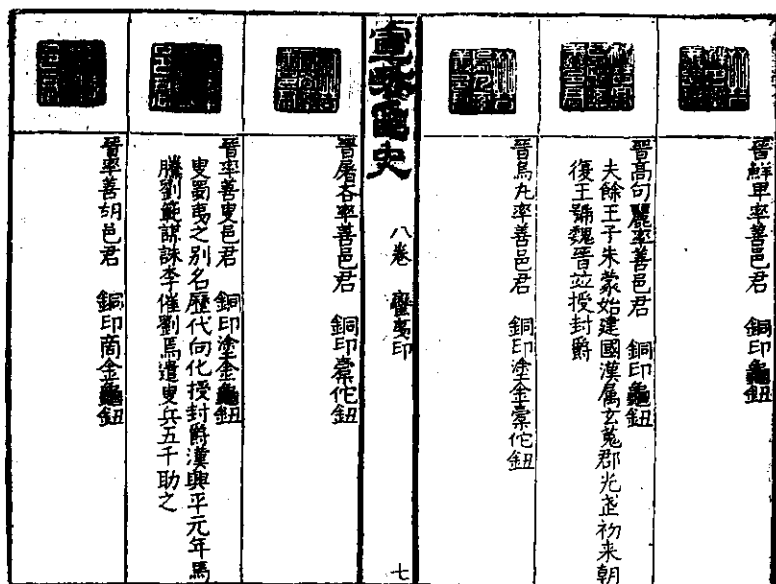 晉鮮卑率善邑君 銅印龜鈕
晉高句驪率善邑君 銅印龜鈕
夫餘王子朱蒙始建國漢属玄菟郡光武初来朝
復王號魏晉竝授封爵
晉烏丸率善邑君 銅印橐佗鈕
宣龢印史 八卷 蠻夷印 七
晉屠各率善邑君 銅印橐佗鈕
晉率善叟邑君 銅印塗金龜鈕
叟蜀夷之别名歷代向化授封爵漢興平元年馬
騰劉範謀誅李傕劉焉遣叟兵五千助之
晉率善胡邑君 銅印商金龜鈕